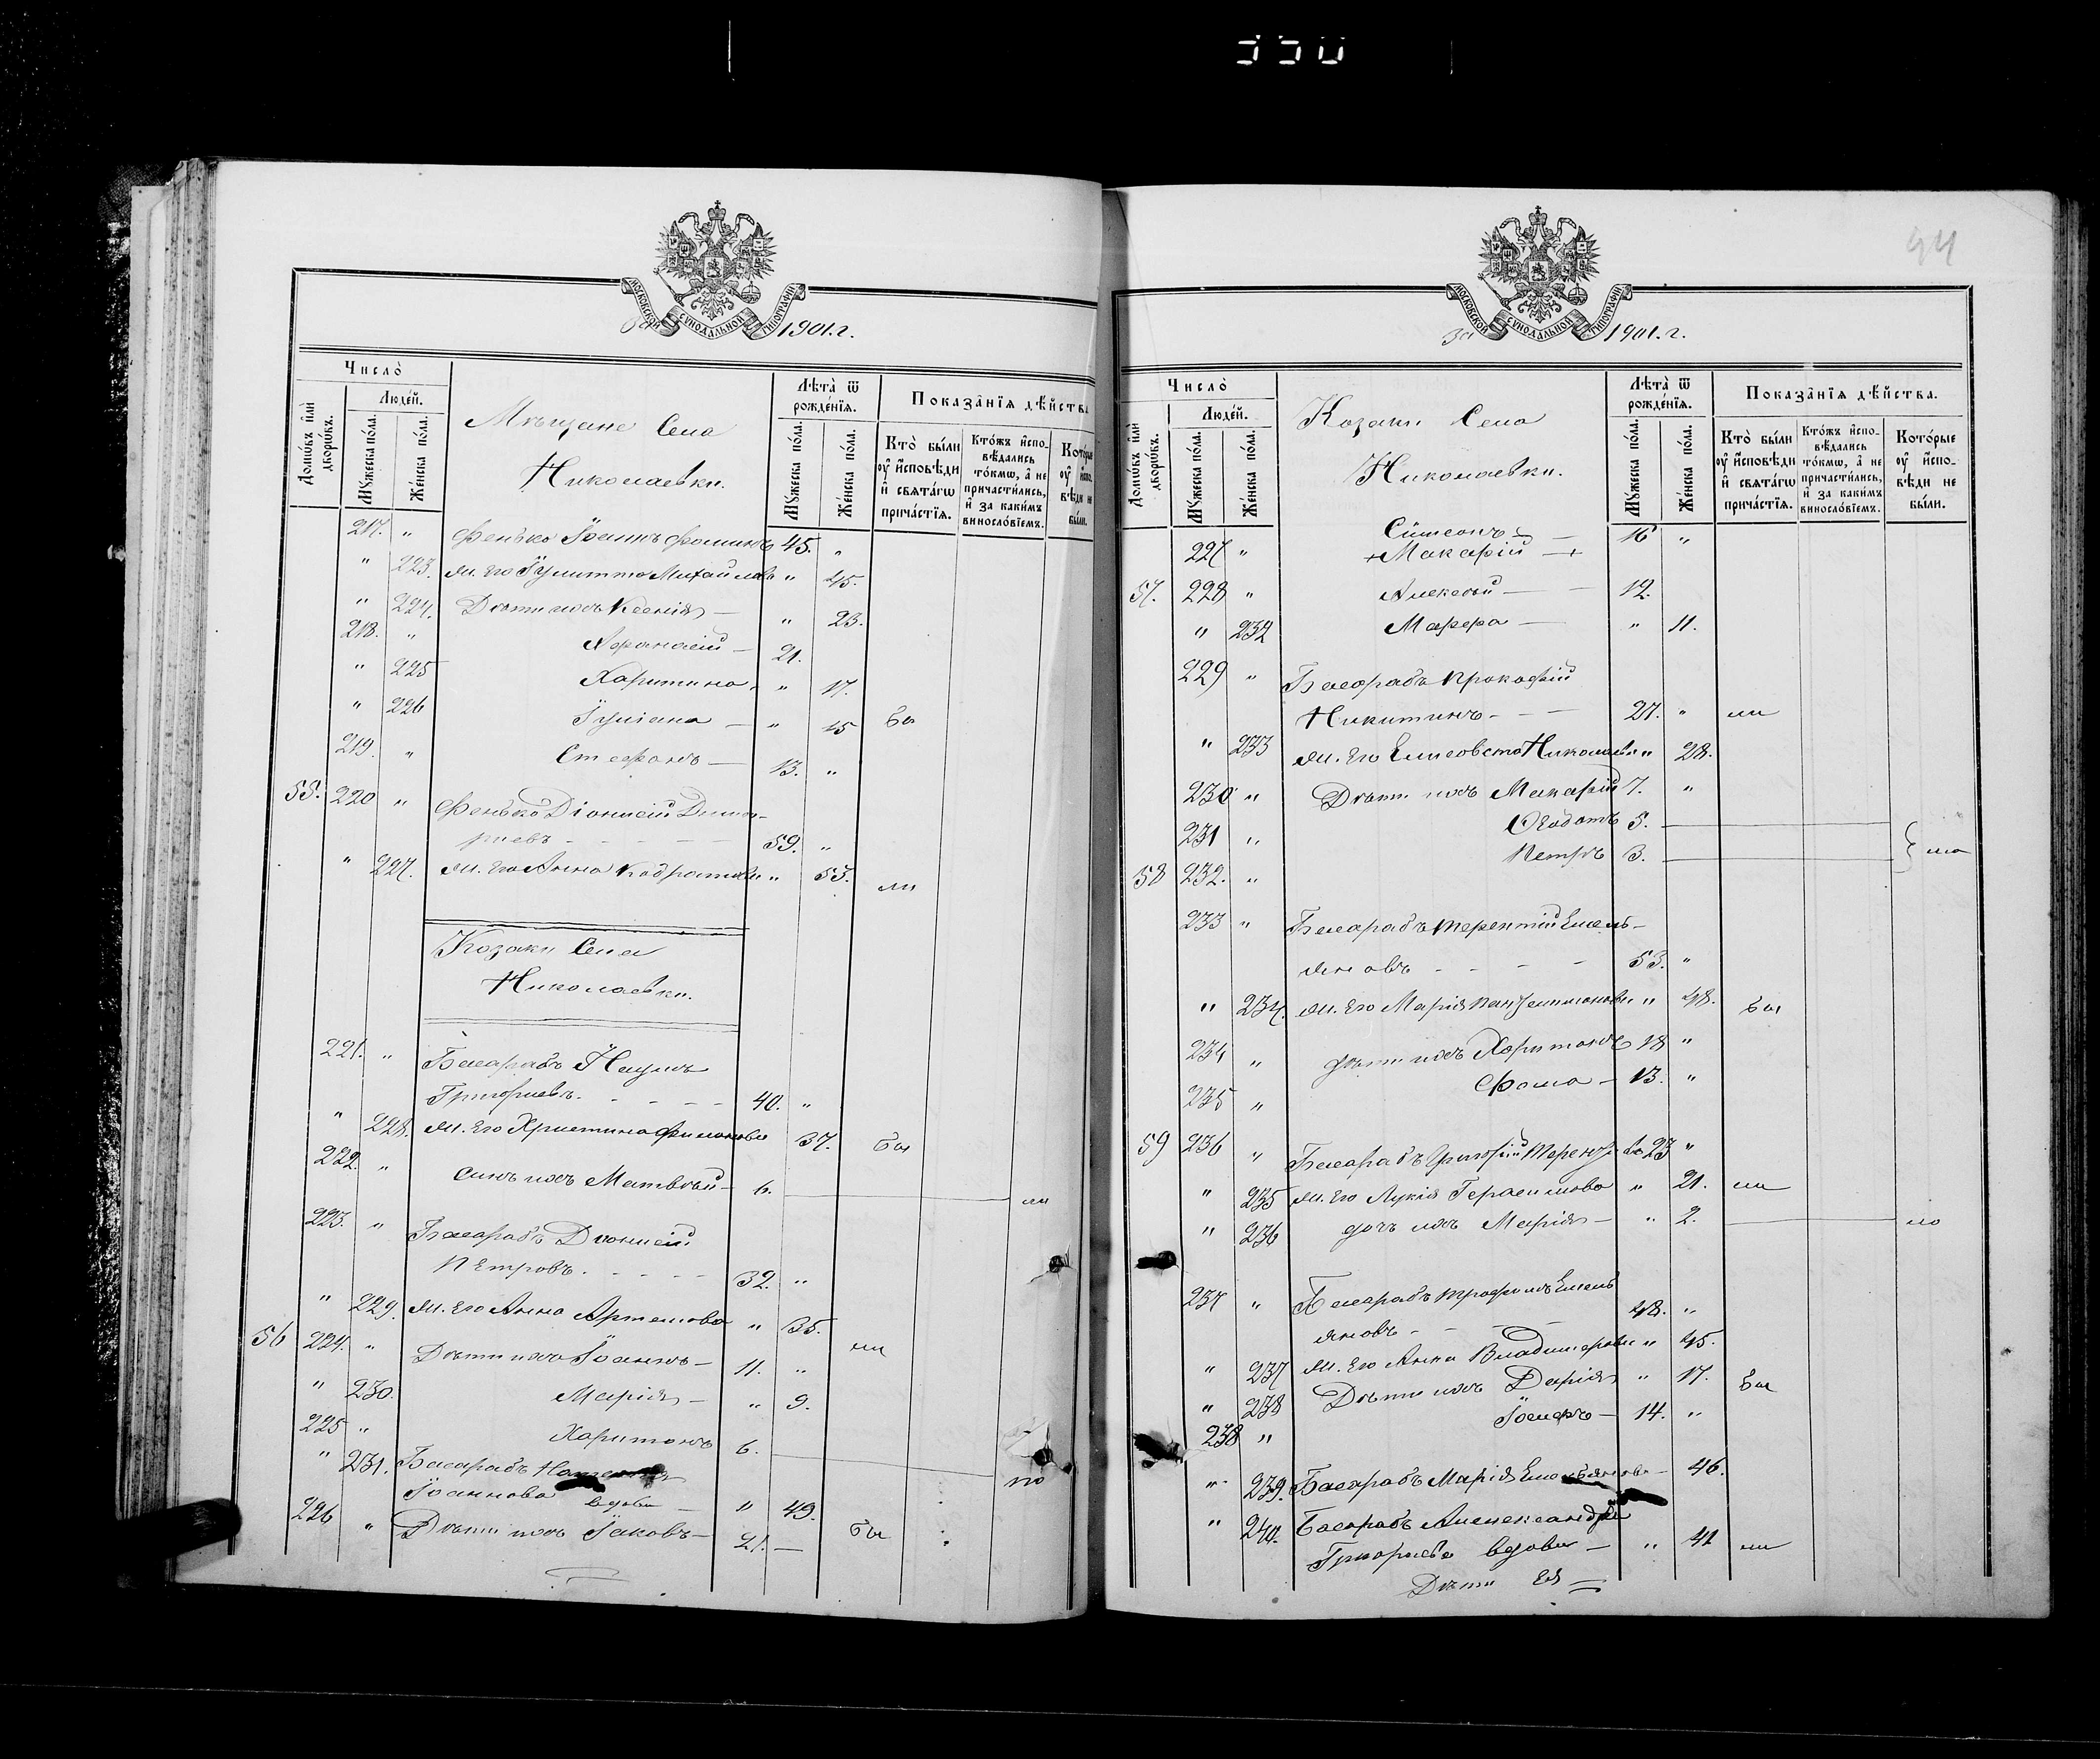 550
МОСКОВСКОЙ СУНОДАЛЬНОЙ ТИПОГРАФІИ
За 1901. г.
Число̀
Людéй.
Домѡ́въ и҆лѝ дворѡ́въ.
Мꙋ́жеска по́ла.
Же́нска по́ла.
Мѣщане Села
Николаевки.
Лѣ́та ѿ рожде́нїѧ.
Мꙋ́жеска по́ла.
Же́нска по́ла.
Показа̂нїѧ дѣ́йства
Кто̀ бы́ли ᲂу҆ и҆сповѣ́ди и҆ свѧта́гѡ прича́стїѧ.
Кто́жъ и҆спо-вѣ́дались то́кмѡ, а҆ не причасти́лись, и҆ за каки́мъ винословїемъ.
Кото́рые ᲂу҆ и҆спо-вѣ́ди не бы́ли.
217. " Фенько Іоаннъ Фоминъ 45. "
" 223. ж. его Іулитта Михайлова " 45.
" 224. Дѣти ихъ Ксенія — " 23.
218. " Афанасій — 21.
" 225 Харитина " 17.
" 226 Іуліана — " 15 бы
219. " Стефанъ — 13. "
55. 220 " Фенько Діонисій Димит-
ріевъ - - - 59. "
" 227. ж. его Анна Кодратова " 55. ли
Козаки Села
Николаевки.
221. " Басарабъ Наумъ
Григориевъ. - - - 40. "
" 228. ж. его Христина Филонова 37. бы
222. " сынъ ихъ Матвѣй — 6. ли
223. " Басарабъ Діонисій
Петровъ. - - - 32. "
" 229. ж. его Анна Артемова " 35. ли
56 224. " Дѣти ихъ Іоаннъ — 11. "
" 230. Марія — " 9.
225 " Харитонъ 6. по
" 231. Басарабъ
Іоаннова вдова — " 49.
226 " Дѣти ихъ Іаковъ — 21. — бы
94
МОСКОВСКОЙ СУНОДАЛЬНОЙ ТИПОГРАФІИ
За 1901. г.
Число̀
Людéй.
Домѡ́въ и҆лѝ дворѡ́въ.
Мꙋ́жеска по́ла.
Же́нска по́ла.
Козаки Села
Николаевки.
Лѣ́та ѿ рожде́нїѧ.
Мꙋ́жеска по́ла.
Же́нска по́ла.
Показа̂нїѧ дѣ́йства.
Кто̀ бы́ли ᲂу҆ и҆сповѣ́ди и҆ свѧта́гѡ прича́стїѧ.
Кто́жъ и҆спо-вѣ́дались то́кмѡ, а҆ не причасти́лись, и҆ за каки́мъ винословїемъ.
Кото́рые ᲂу҆ и҆спо-вѣ́ди не бы́ли.
Сімеонъ — 16 "
227 " +Макарій — +
57. 228 " Алексѣй — 12.
" 232 Марфа — " 11.
229 " Басарабъ Прокофій
Никитинъ - - - 27. " ли
" 233 ж. его Елисавета Николаева " 28.
230 " Дѣти ихъ Макарій 7. "
231 " Ѳеодотъ 5.
Петръ 3.
58 232. "
233 " Басарабъ Терентій Емель-
яновъ - - - 53. "
" 234. ж. его Марія Пантелимонова " 48. бы
234 " Дѣти ихъ Харитонъ 18 "
235 " Фома — 13. "
59 236 " Басарабъ Григорій Терентьев 23 "
" 235 ж. его Лукія Герасимова " 21. ли
" 236 дочь ихъ Марія — " 2. ло
237 " Басарабъ Трофимъ Емель
яновъ - - - 48. "
" 237 ж. его Анна Владимирова " 45.
" 238 Дѣти ихъ Дарія " 17. бы
238 " Іосифъ — 14. "
" 239. Басарабъ Марія Емельянова — 46.
" 240. Басарабъ Александра
Григорьева вдова — " 41 ли
Дѣти Ея =